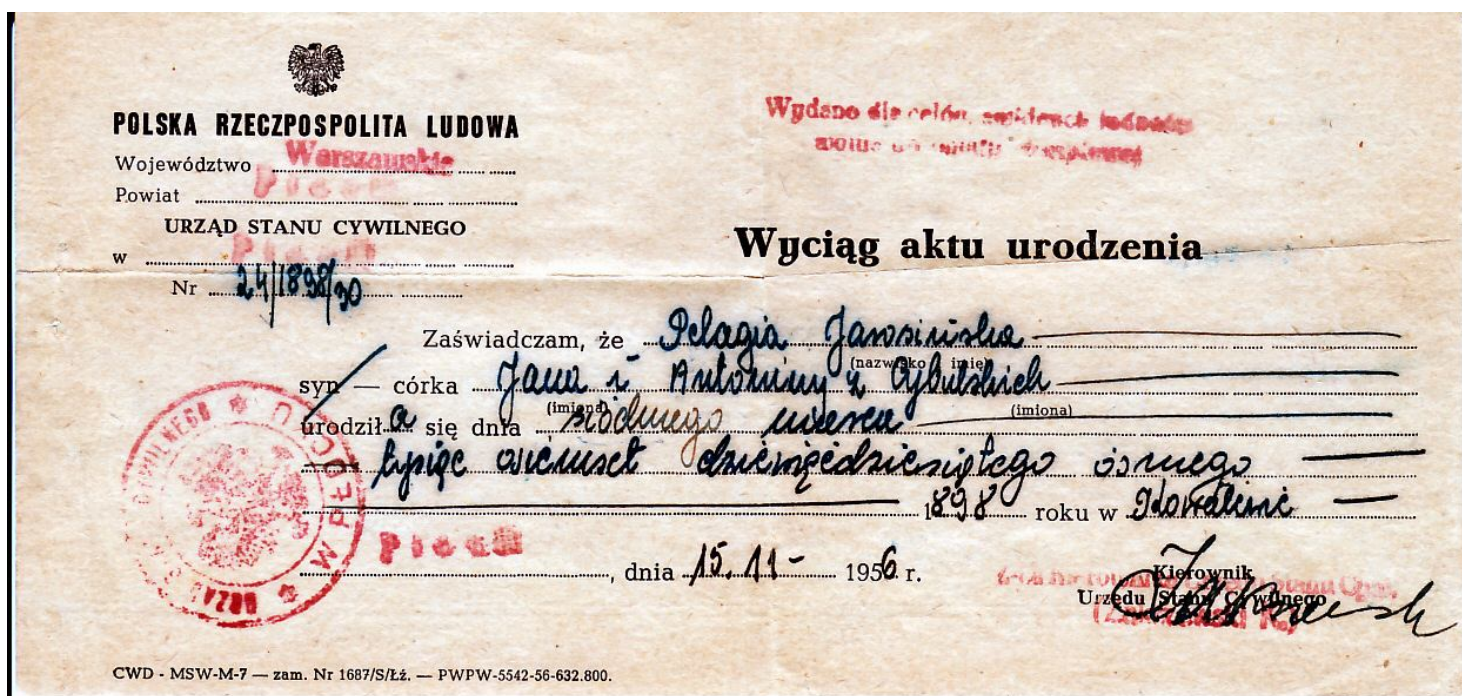 POLSKA RZECZPOSPOLITA LUDOWA
Województwo Warszawskie
Powiat Płock
URZĄD STANU CYWILNEGO
w Płock
Nr 24/1898/30
Wydano dla celów ewidencji ludności
Wyciąg aktu urodzenia
Zaświadczam, że Pelagia Jarosińska
(nazwisko i imię)
syn — córka Jana i Antoniny z Cybulskich
(imiona) (imiona)
urodził a się dnia siódmego marca
tysiąc osiemset dziewięćdziesiątego ósmego
1898 roku w
Płock, dnia 15.11- 1956 r.
Kierownik
Urzędu Stanu Cywilnego
URZĄD STANU CYWILNEGO W PŁOCKU
CWD - MSW-M-7 — zam. Nr 1687/S/Łź. — PWPW-5542-56-632.800.